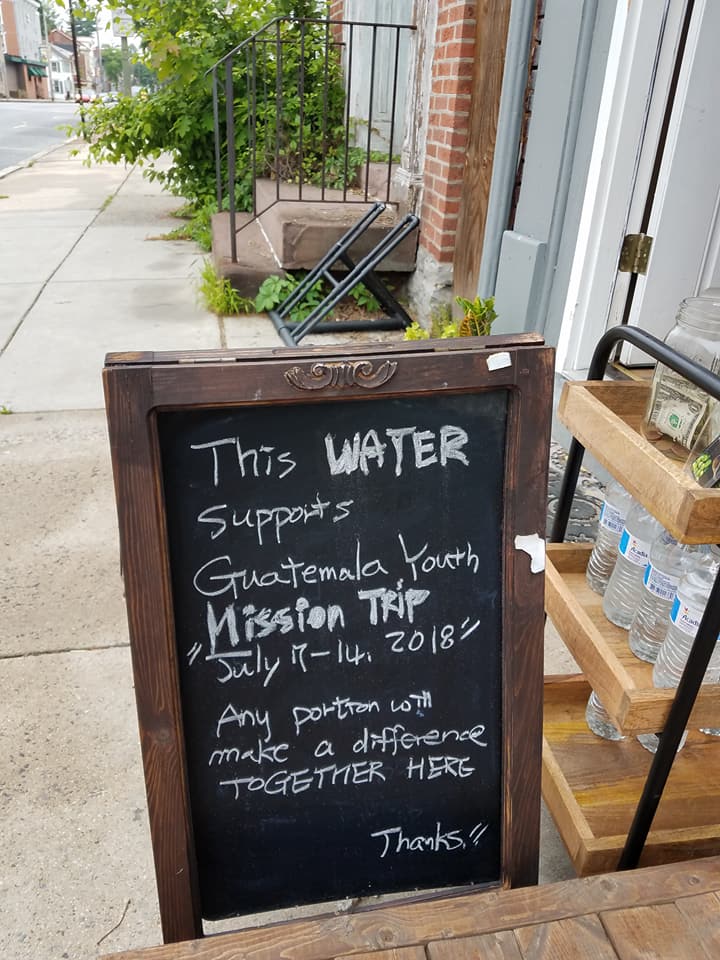 This WATER
supports
Guatemala Youth
Mission TRIP
"July 7-14. 2018"
Any portion will
make a difference
TOGETHER HERE
Thanks."
Acadia